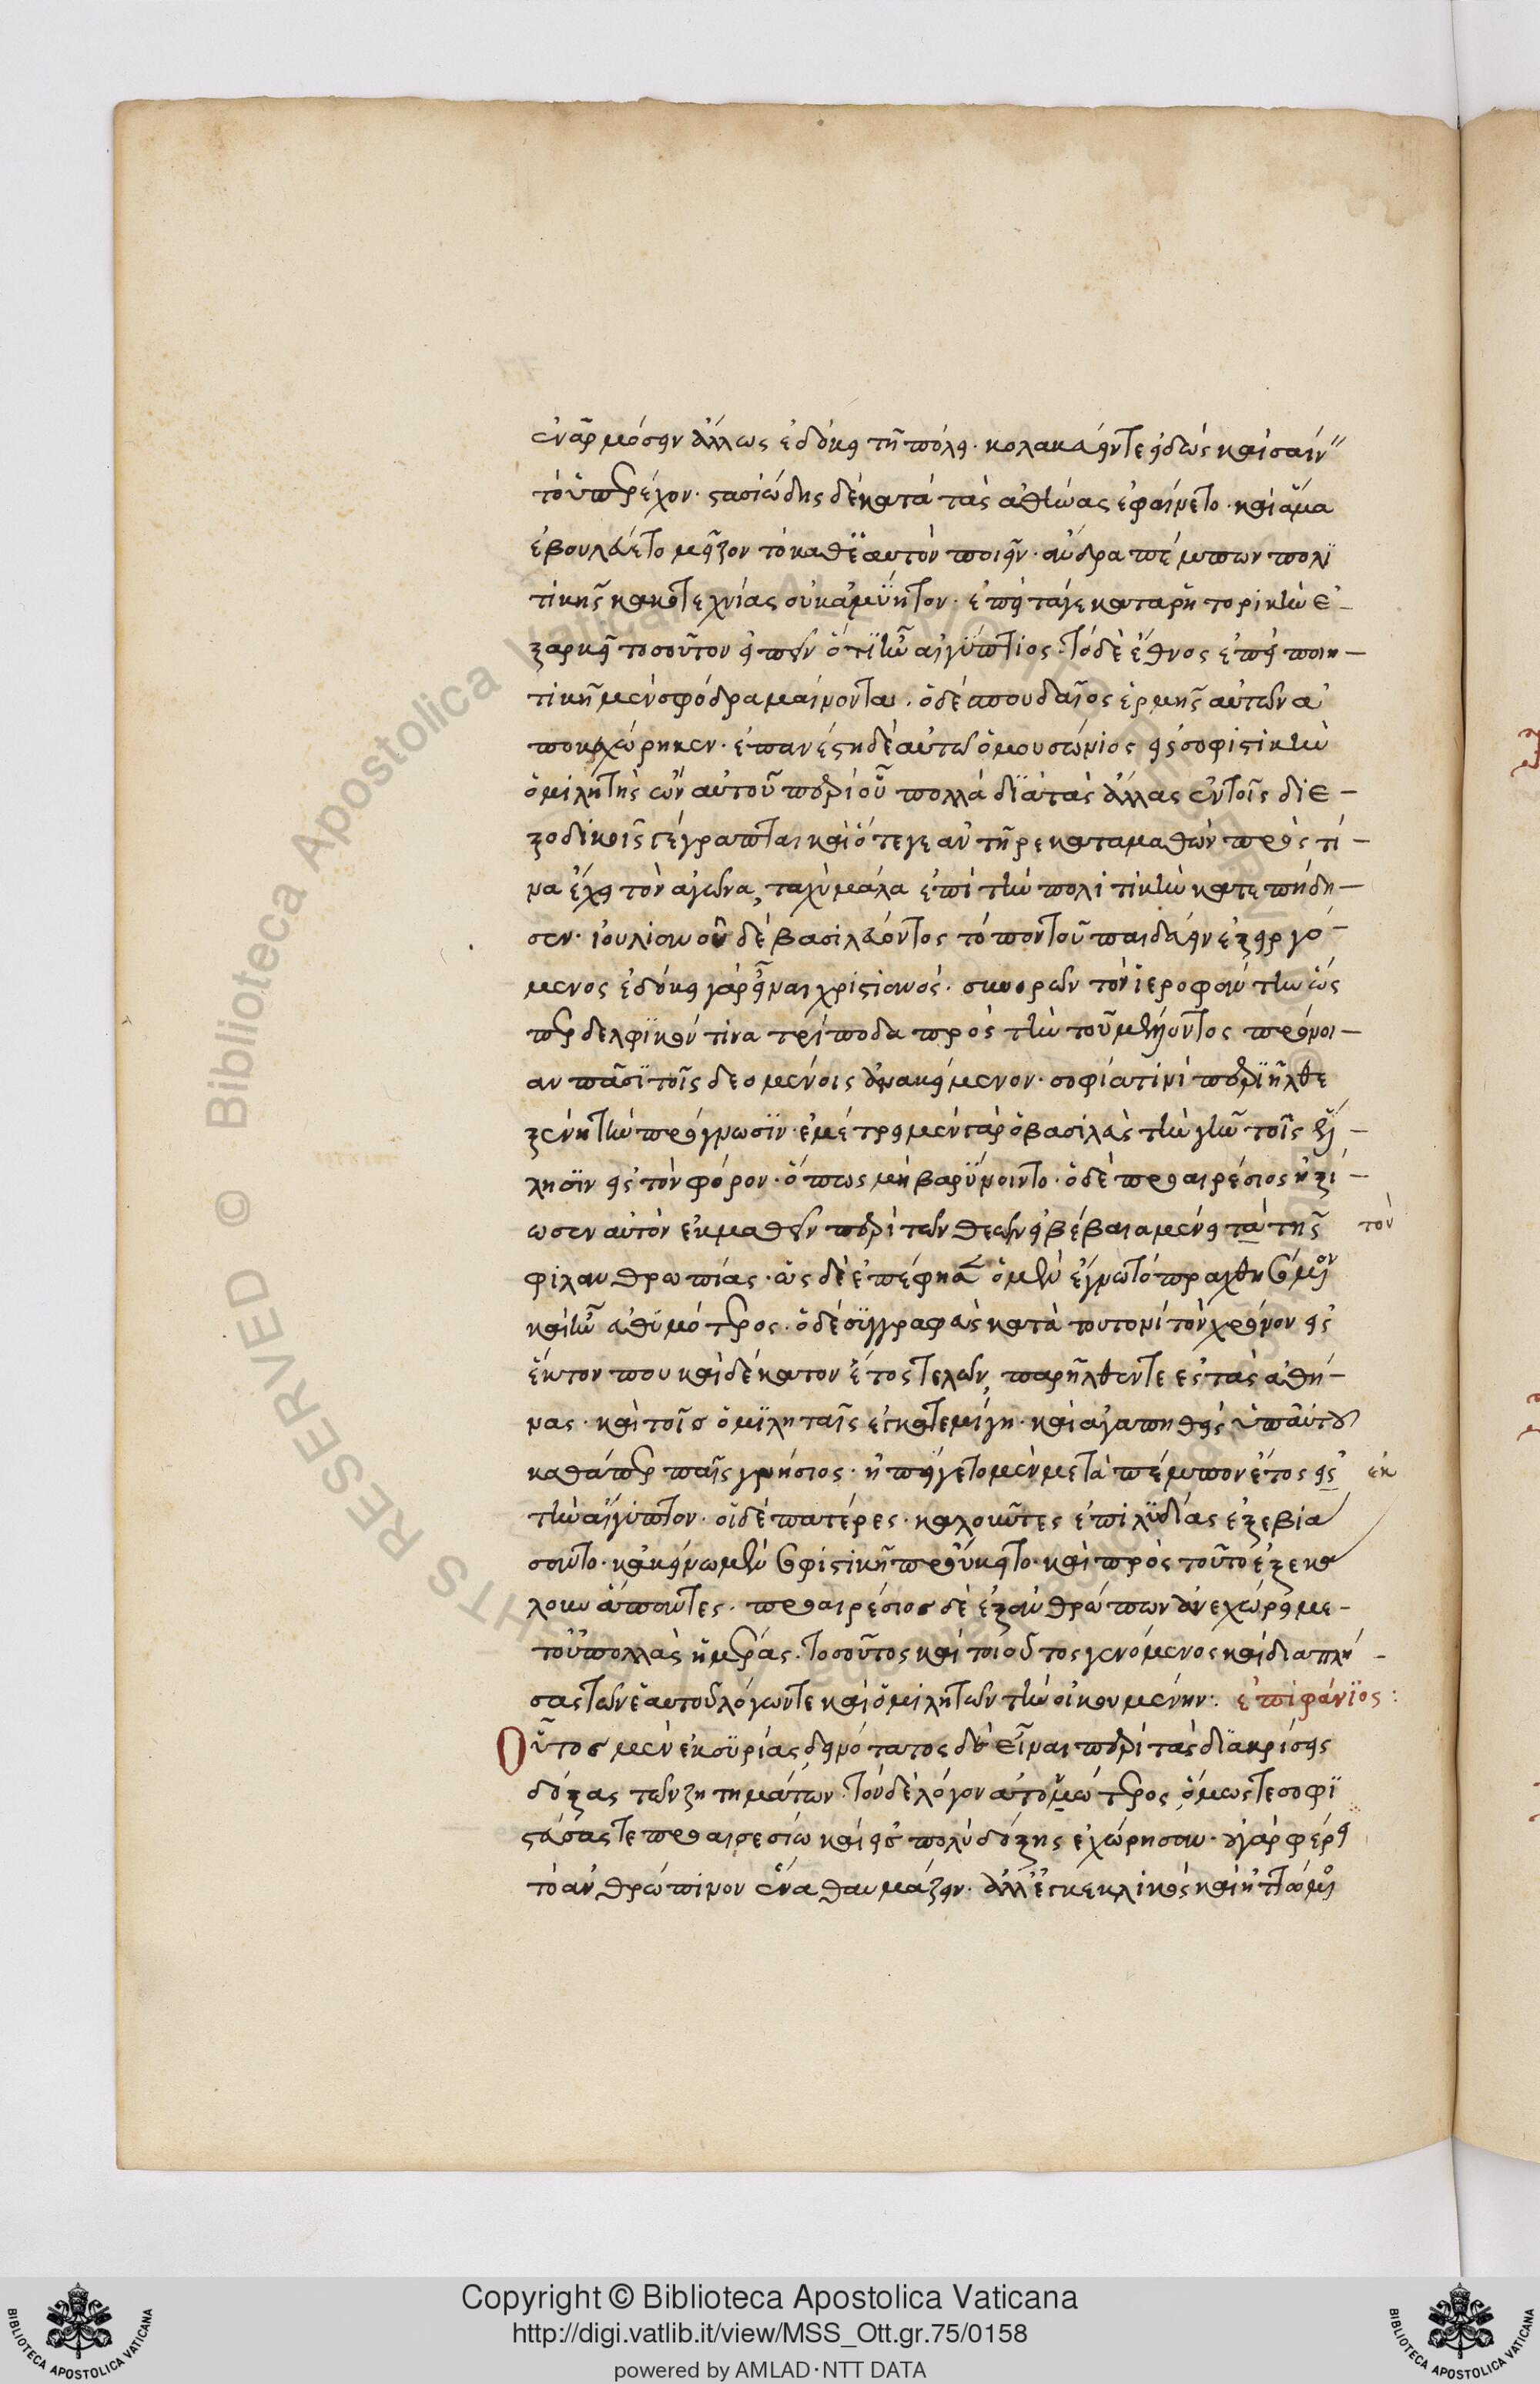 ἐναρμόσειν ἄλλως ἐδόκει τῆ πόλει· κολακεύειν τε εἰδὼς καὶ σαίν
τὸ ὑπερέχον· στασιώδης δὲ κατὰ τὰς ἀθήνας ἐφαίνετο· καὶ ἅμα
ἐβουλεύετο μεῖζον τὸ καθ' ἑαυτὸν ποιεῖν· ἄνδρα πέμπων πολι
τικῆς κακοτεχνίας οὐκ ἀμύητον· ἐπεὶ τά γε κατὰ ῥητορικὴν ἐ-
ξαρκεῖ τοσοῦτον εἰπεῖν ὅτι ἦν αἰγύπτιος· τὸ δὲ ἔθνος ἐπεὶ ποιη-
τικῆ μὲν σφόδρα μαίνονται· ὁ δὲ σπουδαῖος ἑρμῆς αὐτῶν ἀ
ποκεχώρηκεν· ἐπανέστη δὲ αὐτῶ ὁ μουσώνιος εἰς σοφιστικὴν
ὁμιλητὴς ὢν αὐτοῦ περὶ οὗ πολλὰ διὰ τὰς ἄλλας ἐν τοῖς διε-
ξοδικοῖς γέγραπται καὶ ὅτε γε ἀντῆρε καταμαθὼν πρὸς τί-
να ἔχει τὸν ἀγῶνα, ταχὺ μάλα ἐπὶ τὴν πολιτικὴν κατεπήδη-
σεν· ἰουλιανοῦ δὲ βασιλεύοντος τόπον τοῦ παιδεύειν ἐξειργό-
μενος ἐδόκει γὰρ εἶναι χριστιανός· συνορῶν τὸν ἱεροφάντην ὡς
περ δελφικόν τινα τρίποδα πρὸς τὴν τοῦ μέλλοντος πρόνοι-
αν πᾶσι τοῖς δεομένοις ἀνακείμενον· σοφία τινὶ περιῆλθε
ξένη τὴν πρόγνωσιν· ἐμέτρει μὲν γὰρ ὁ βασιλεὺς τὴν γῆν τοῖς ἕλ-
λησιν εἰς τὸν φόρον· ὅπως μὴ βαρύνοιντο· ὁ δὲ προαιρέσιος ἠξί-
ωσεν αὐτὸν ἐκμαθεῖν περὶ τῶν θεῶν εἰ βέβαια μένει τὰ τῆς τὸν
φιλανθρωπίας· ὡς δὲ ἀπέφησεν ὁ μὲν ἔγνω τὸ πραχθησόμενον
καὶ ἦν εὐθυμότερος· ὁ δὲ συγγραφεὺς κατὰ τουτονὶ τὸν χρόνον εἰς
ἕκτον που καὶ δέκατον ἔτος τελῶν, παρῆλθέν τε ἐς τὰς ἀθή-
νας· καὶ τοῖς ὁμιληταῖς ἐγκατεμίγη· καὶ ἀγαπηθεὶς ὑπ' αὐτοῦ
καθάπερ παῖς γνήσιος· ἠπείγετο μὲν μετὰ πέμπτον ἔτος εἰς ἐκ
τὴν αἴγυπτον· οἱ δὲ πατέρες· καλοῦντες ἐπὶ λυδίας ἐξεβιά
σαντο· κἀκείνω μὲν σοφιστικὴ προὔκειτο· καὶ πρὸς τοῦτο ἐξεκά
λουν ἅπαντες· προαιρέσιος δὲ ἐξ ἀνθρώπων ἀνεχώρει με-
τ' οὐ πολλὰς ἡμέρας· τοσοῦτος καὶ τοιοῦτος γενόμενος καὶ διαπλή-
σας τῶν ἑαυτοῦ λόγων τε καὶ ὁμιλητῶν τὴν οἰκουμένην: ἐπιφάνιος:
Οὗτος μὲν ἐκ συρίας δεινότατος δὲ εἶναι περὶ τὰς διακρίσεις
δόξας τῶν ζητημάτων· τὸν δὲ λόγον ἀτονώτερος, ὅμως τε σοφι
στεύσας τε προαιρεσίω καὶ εἰς πολὺ δόξης ἐχώρησαν· οὐ γὰρ φέρει
τὸ ἀνθρώπινον ἕνα θαυμάζειν· ἀλλ' ἐγκεκλικὸς καὶ ἡττώμενον